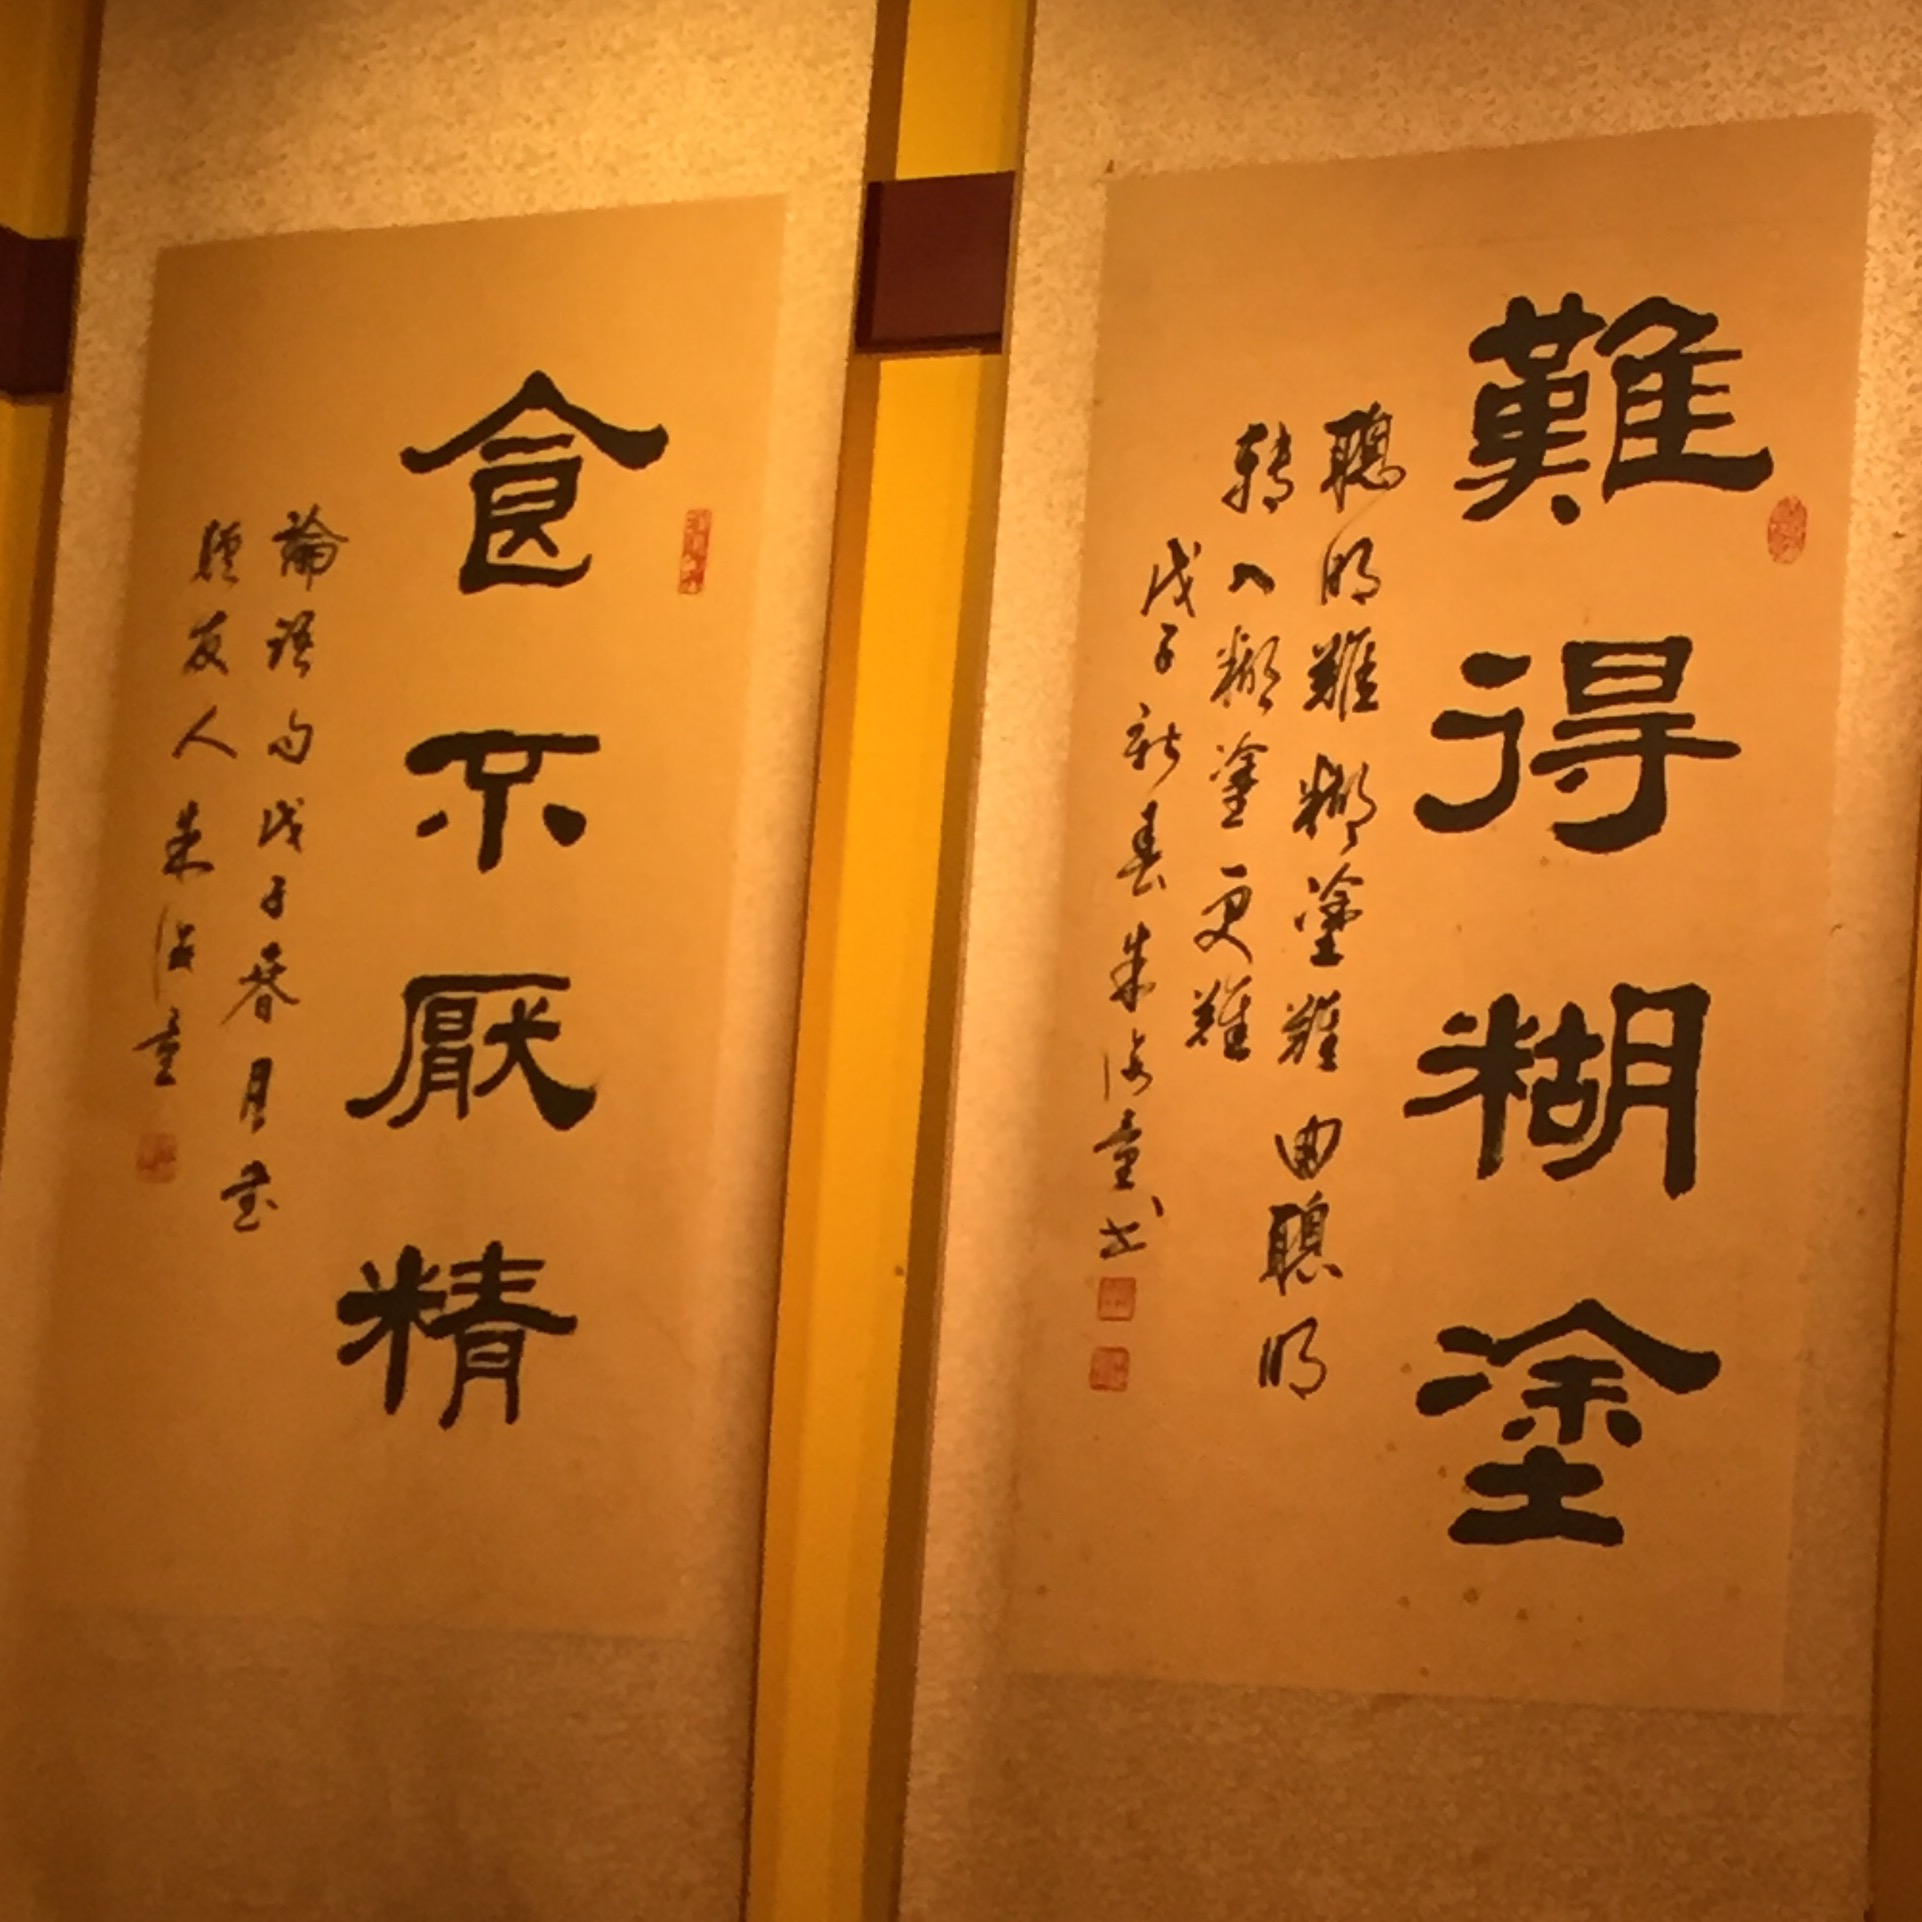 難得糊塗
聰明難糊塗難由聰明
转入糊塗更難
戊子新春朱 童书
食不厭精
論语句戊子春月
友人朱 童